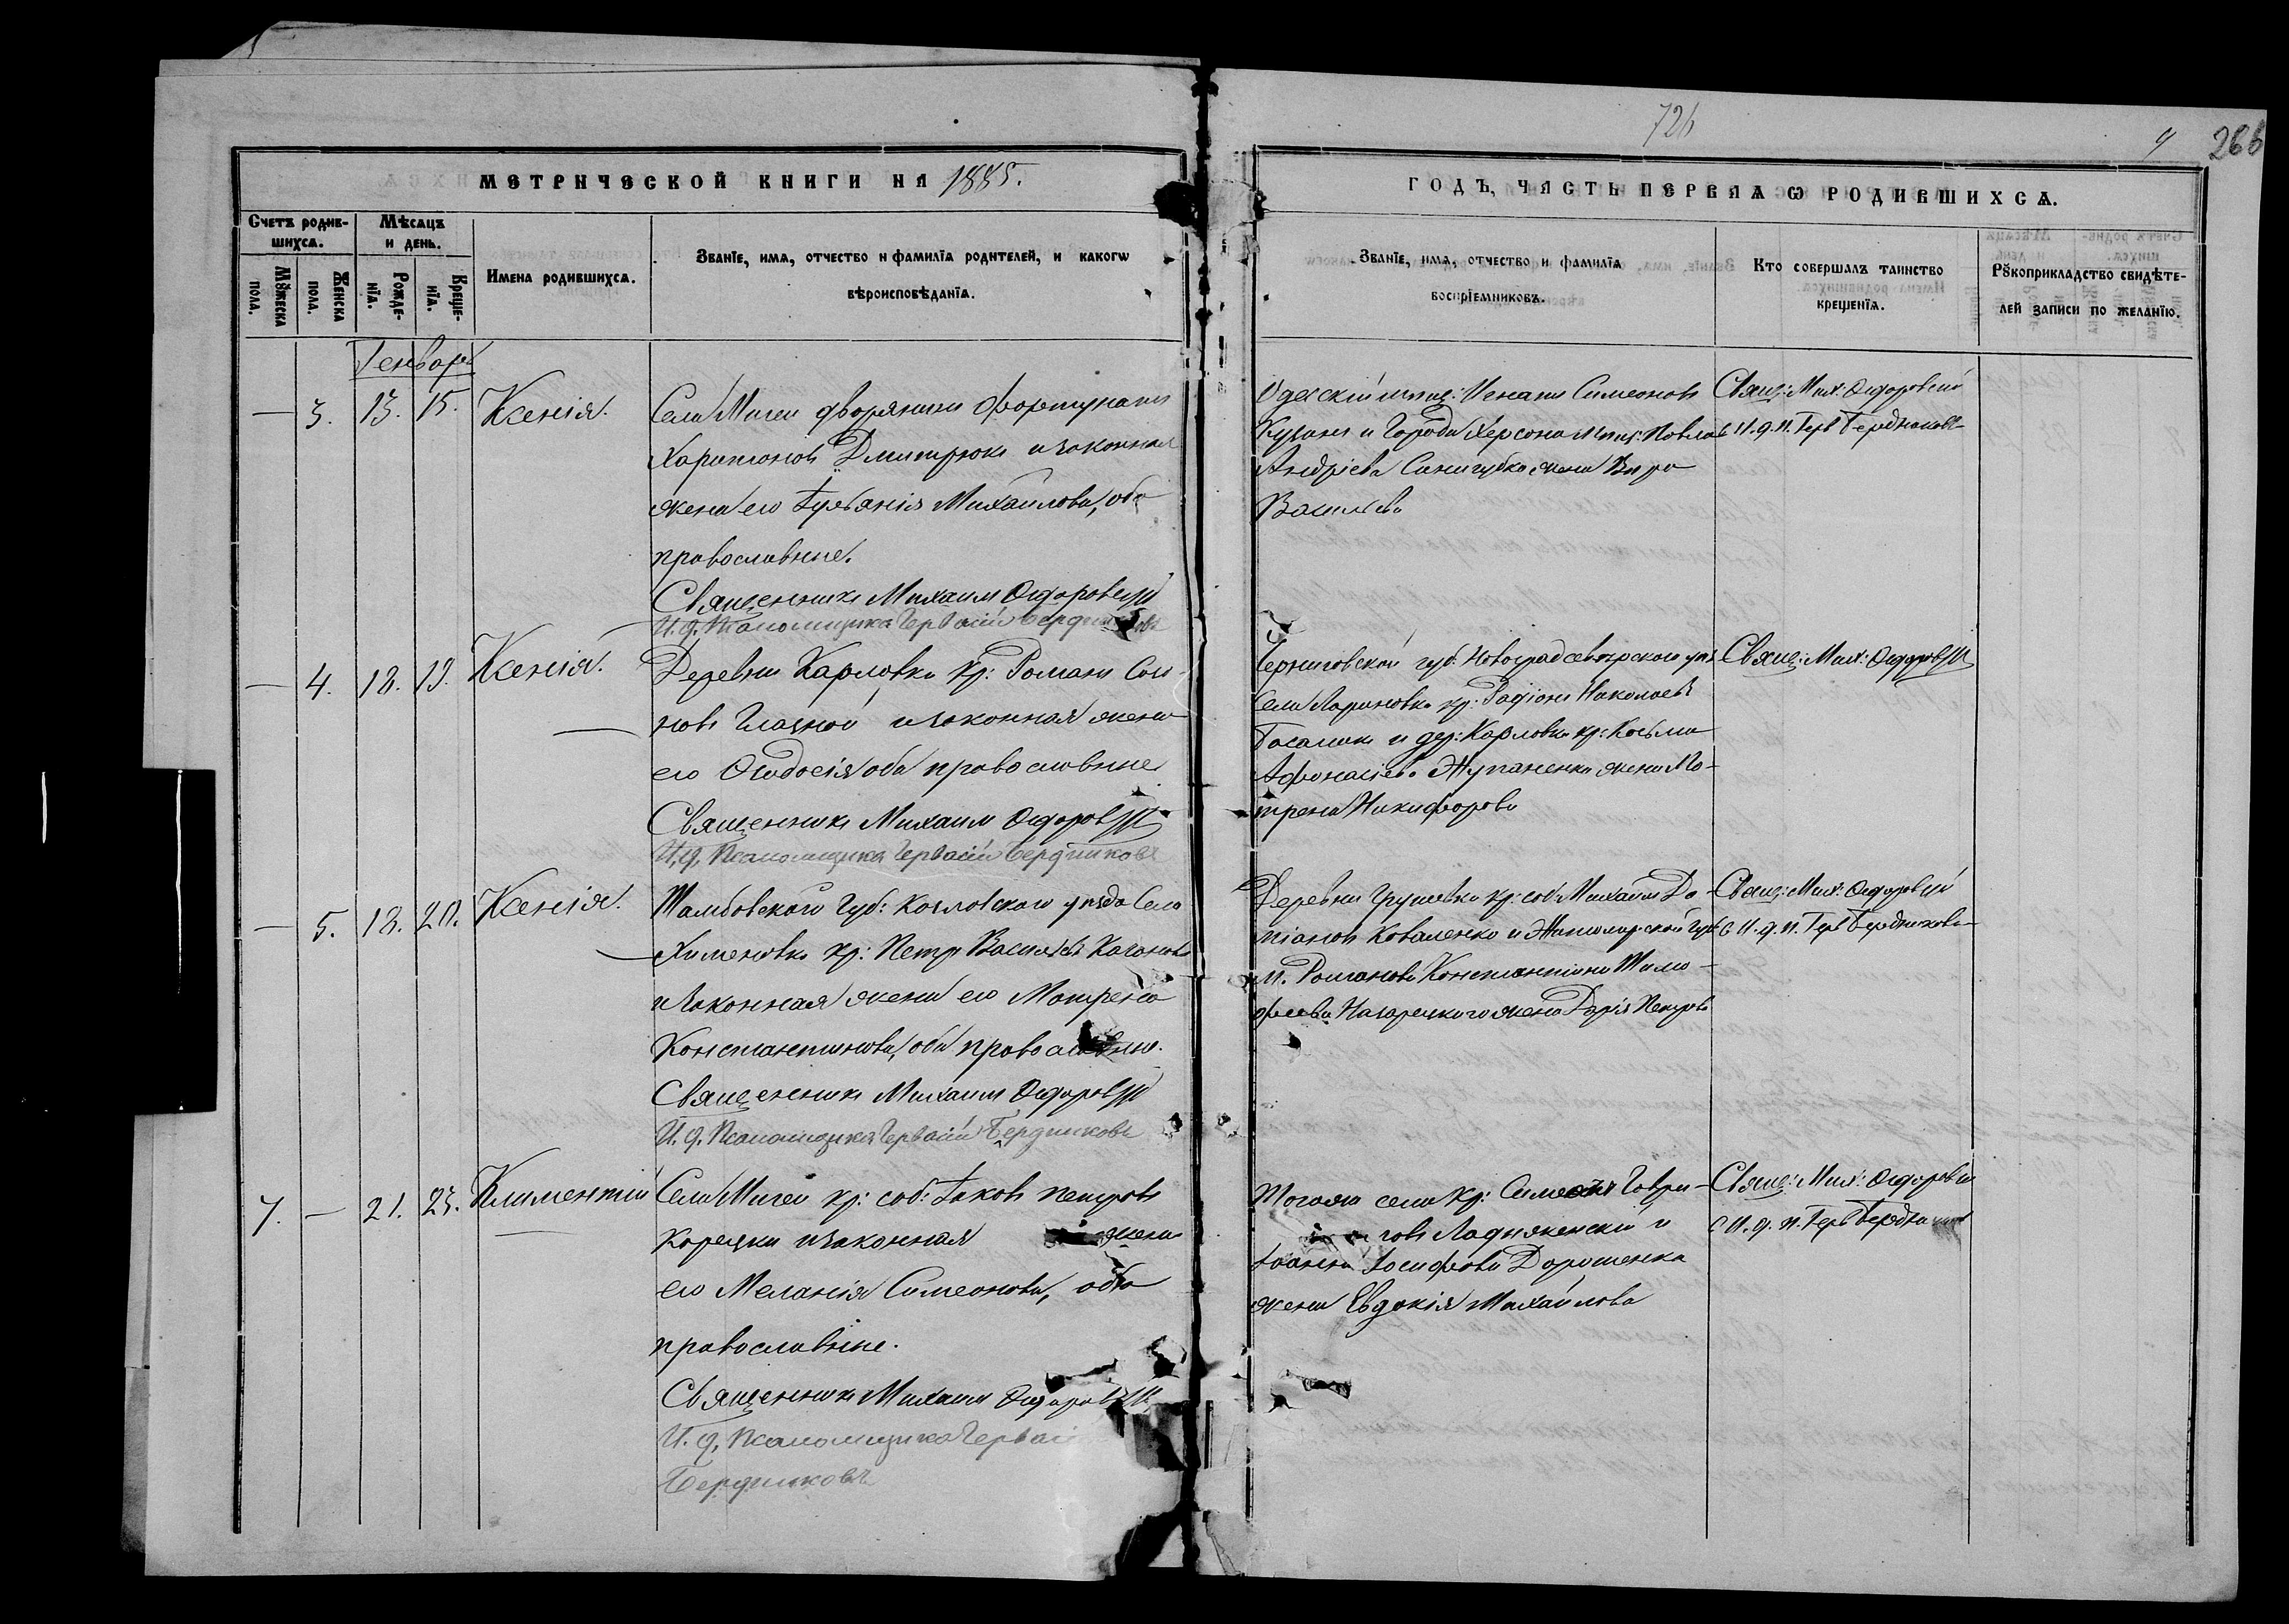 726
9 266
МЕТРИЧЕСКОЙ КНИГИ НА 1885.
ГОДЪ, ЧАСТЬ ПЕРВАЯ Ѡ РОДИВШИХСѦ.
Счетъ родив-
шихсѧ.
Мѣсѧцъ
и день.
Мꙋжеска
пола.
Женска
пола.
Рожде-
нїѧ.
Креще-
нїѧ.
Имена родившихсѧ.
Званїе, имѧ, отчество и фамилїѧ родителей, и какогѡ
вѣроисповѣданїѧ.
Званїе, имѧ, отчество и фамилїѧ
воспрїемниковъ.
Кто совершалъ таинство
крещенїѧ.
Рꙋкоприкладство свидѣте-
лей записи по желанїю.
Генварь
— 3. 13. 15. Ксенія.
Села Мигеи дворянинъ Фортунатъ
Харитоновъ Дмитрюкъ и законная
жена его Іуліанія Михаилова, оба
православные.
Священникъ Михаилъ
И. д. Псаломщика Гервасій Бердниковъ
Одескій мѣщ: Игнатій Симеоновъ
и Города Херсона мѣщ: Павла
Андріева жена Вѣра
Василіева
Свящ: Мих:
с и. д. п. Герв Бердниковъ
— 4. 18. 19. Ксенія.
Деревни Карловки кр: Романъ
новъ и законная жена
его Ѳеодосія оба православные
Священникъ Михаилъ
И. д. Псаломщика Гервасій Бердниковъ
Черниговской губ: Новоградсеверского уѣз
села Лариновки кр: Радіонъ Николаевъ
и дер: Карловки кр: Козьмы
Афонасіева Жупаненки жена Мо-
трена Никифорова
Свящ: Мих:
— 5. 18. 20. Ксенія.
Тамбовской Губ: Козловского уѣзда Села
кр: Петръ Василіевъ
и законная жена его Мотрена
Константинова, оба православные.
Священникъ Михаилъ
И. д. Псаломщика Гервасій Бердниковъ
Деревни Грушевки кр: соб: Михаилъ Да-
міановъ Коваленко и Житомирской Губ
м. Романова Константина Тимо-
феева Назарецкого жена Дарія Петрова
Свящ: Мих:
с и. д. п. Герв Бердниковъ
7. — 21. 23. Климентій
Села Мигеи кр: соб: Іаковъ Петровъ
и законная жена
его Меланія Симеонова, оба
православные.
Священникъ Михаилъ
И. д. Псаломщика Гервасій
Бердниковъ
Тогоже села кр: Симеонъ Гаври-
ловъ Ладыженскій и
Іоанна Іосифова Дорошенка
жена Евдокія Михаилова
Свящ: Мих:
с и. д. п. Герв Бердниковъ